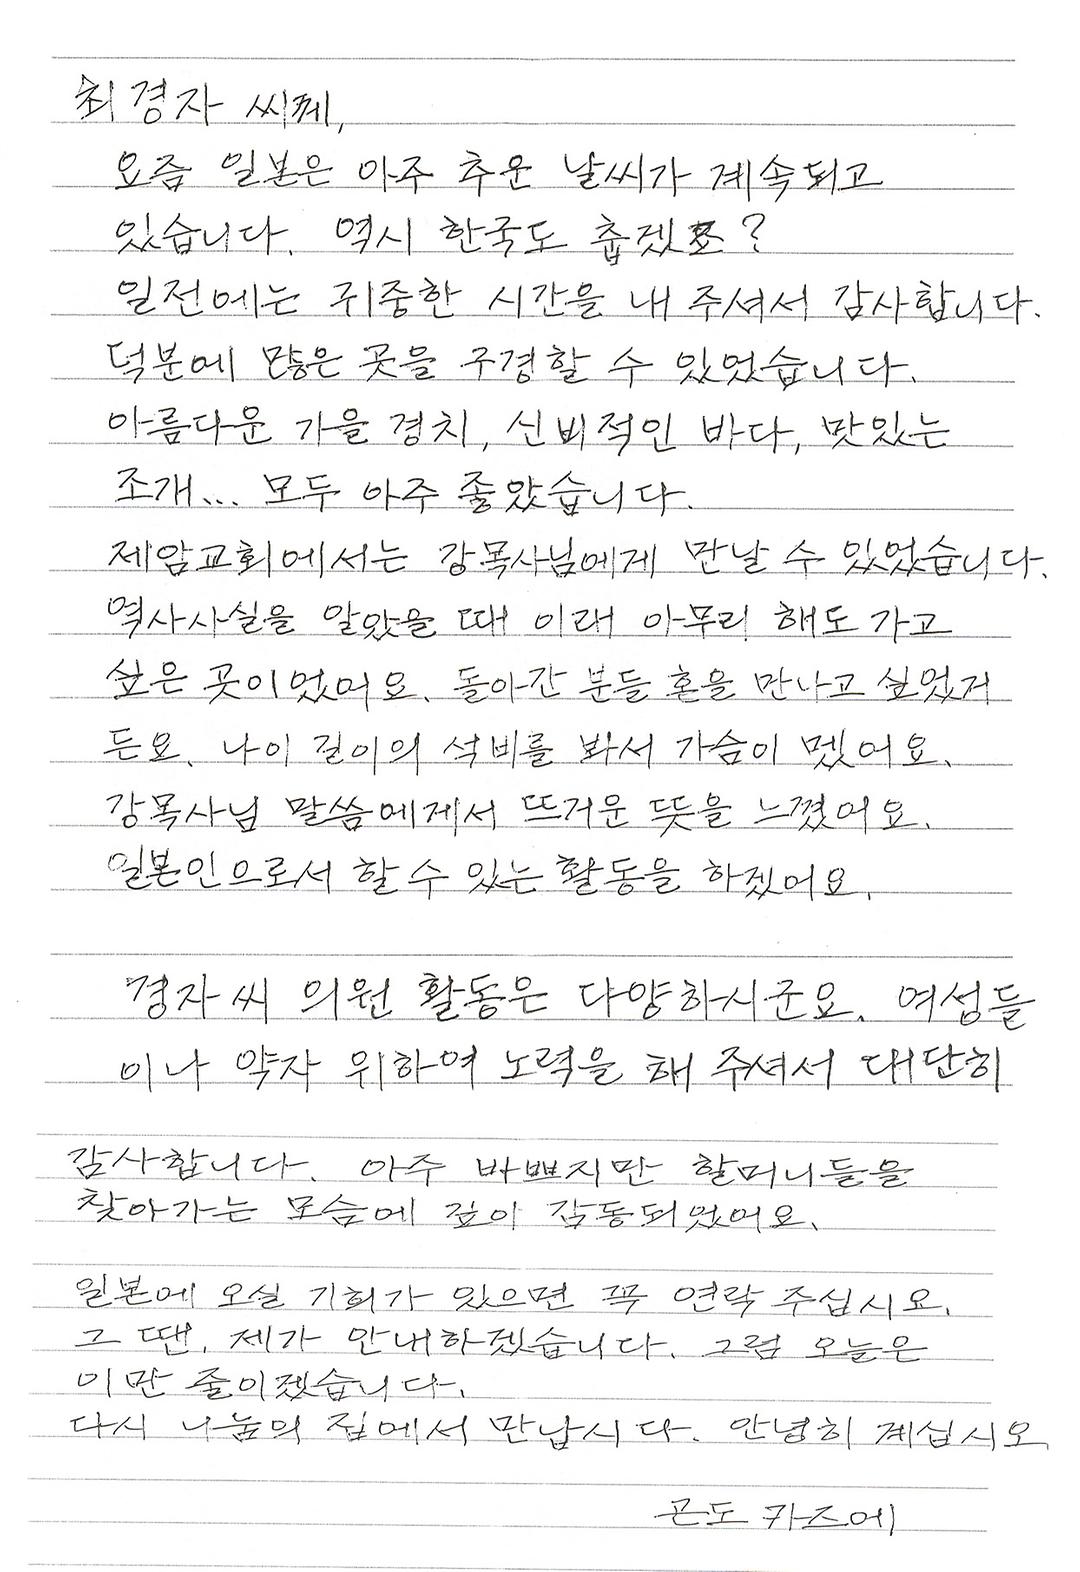 최경자 씨께,
요즘 일본은 아주 추운 날씨가 계속되고
있습니다. 역시 한국도 춥겠죠?
일전에는 귀중한 시간을 내 주셔서 감사합니다.
덕분에 많은 곳을 구경할 수 있었습니다.
아름다운 가을 경치, 신비적인 바다, 맛있는
조개... 모두 아주 좋았습니다.
제암교회에서는 강목사님에게 만날 수 있었습니다.
역사사실을 알았을 때 이래 아무리 해도 가고
싶은 곳이었어요. 돌아간 분들 혼을 만나고 싶었거
든요. 나이 길이의 석비를 봐서 가슴이 멨어요.
강목사님 말씀에게서 뜨거운 뜻을 느꼈어요.
일본인으로서 할 수 있는 활동을 하겠어요.
경자씨 의원 활동은 다양하시군요. 여성들
이나 약자 위하여 노력을 해 주셔서 대단히
감사합니다. 아주 바쁘지만 할머니들을
찾아가는 모습에 깊이 감동되었어요.
일본에 오실 기회가 있으면 꼭 연락 주십시오.
그 땐, 제가 안내하겠습니다. 그럼 오늘은
이만 줄이겠습니다.
다시 나눔의 집에서 만납시다. 안녕히 계십시오
곤도 카즈에